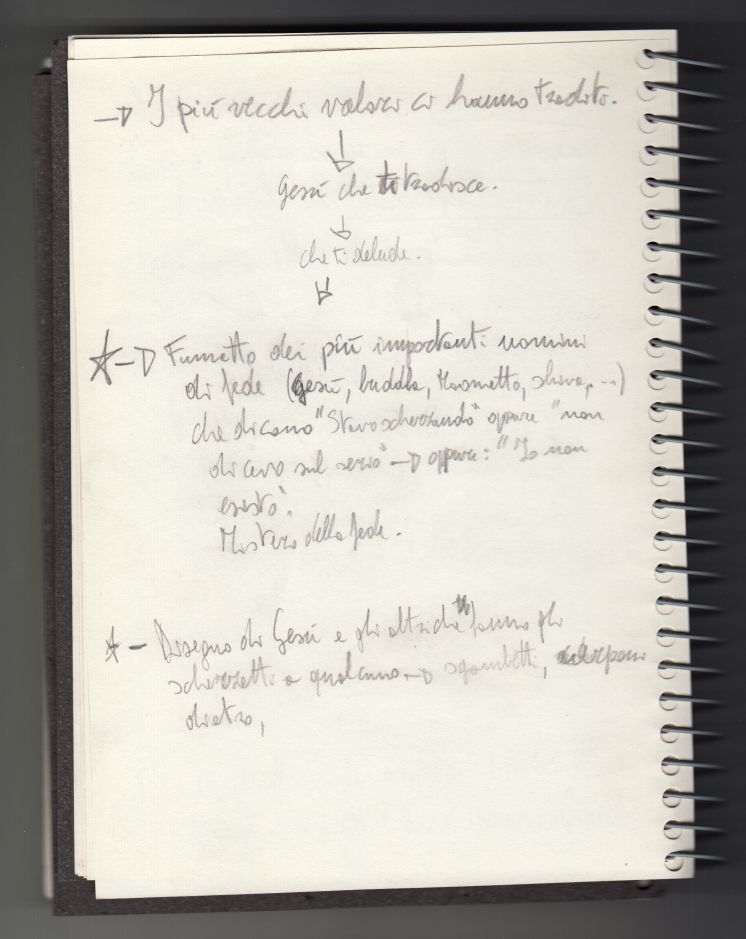 → I più vecchi valori ci hanno tradito.
↓
Gesù che ti tradisce.
↓
che ti delude.
↓
☆→ Fumetto dei più importanti uomini
di fede (gesù, buddha, Maometto, shiva, ...)
che dicono "Stavo scherzando" oppure "non
dicevo sul serio" → oppure: "Io non
esisto".
Mistero della fede.
☆ - Disegno di Gesù e gli altri che fanno gli
scherzetti a qualcuno → sgambetti,
dietro,